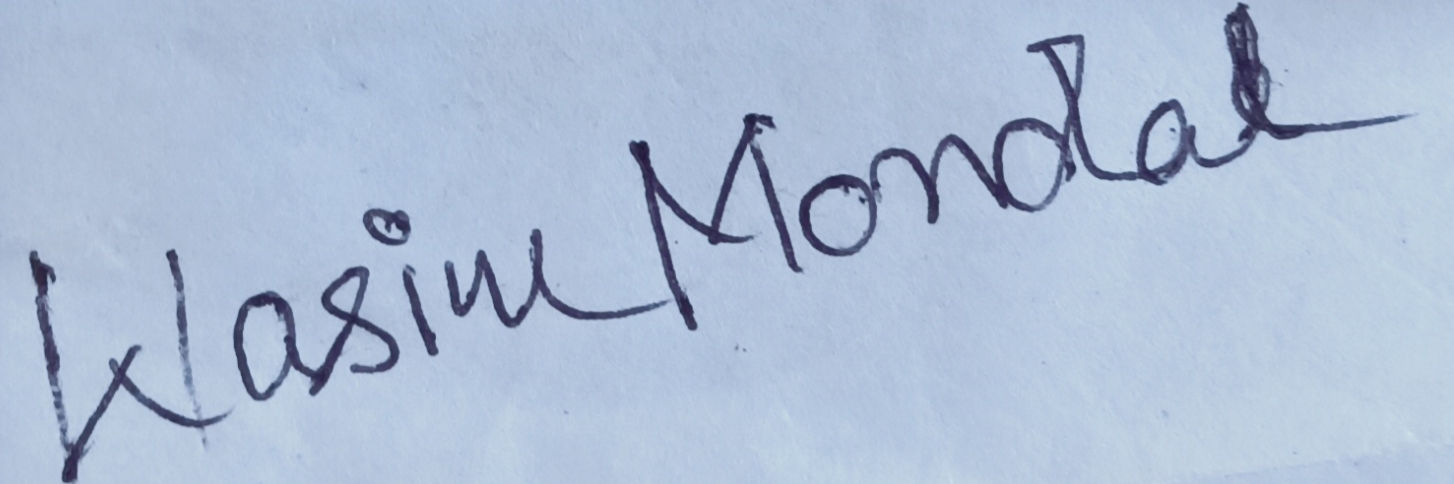 Wasim Mondal